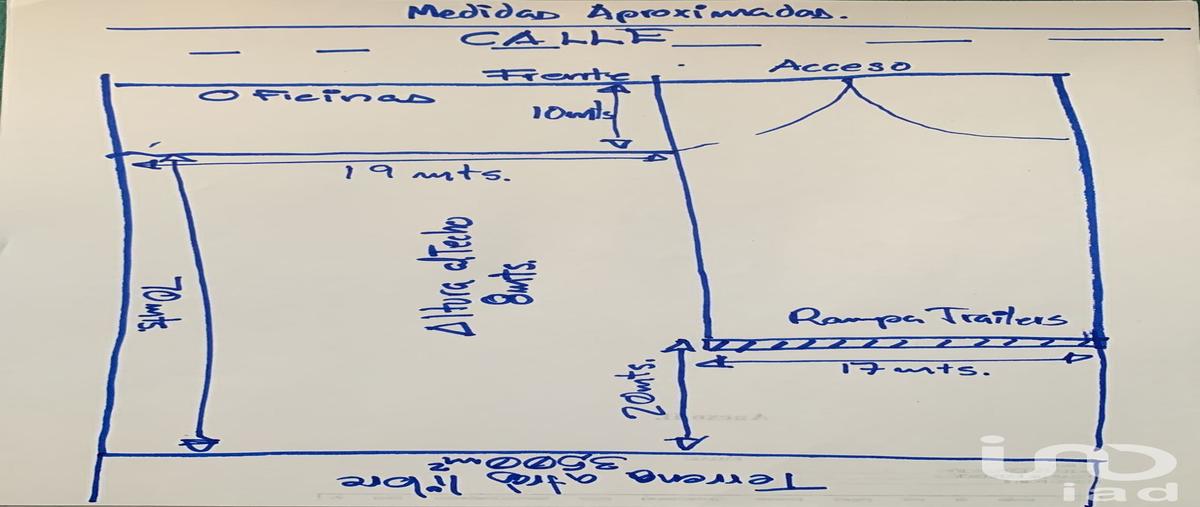 Medidas Aproximadas.
CALLE
Frente
Acceso
Oficinas
10 mts
19 mts.
70 mts
Altura al Techo
8 mts.
Rampa Trailers
17 mts.
20 mts.
Terreno atrás libre
3,500 m²
iad